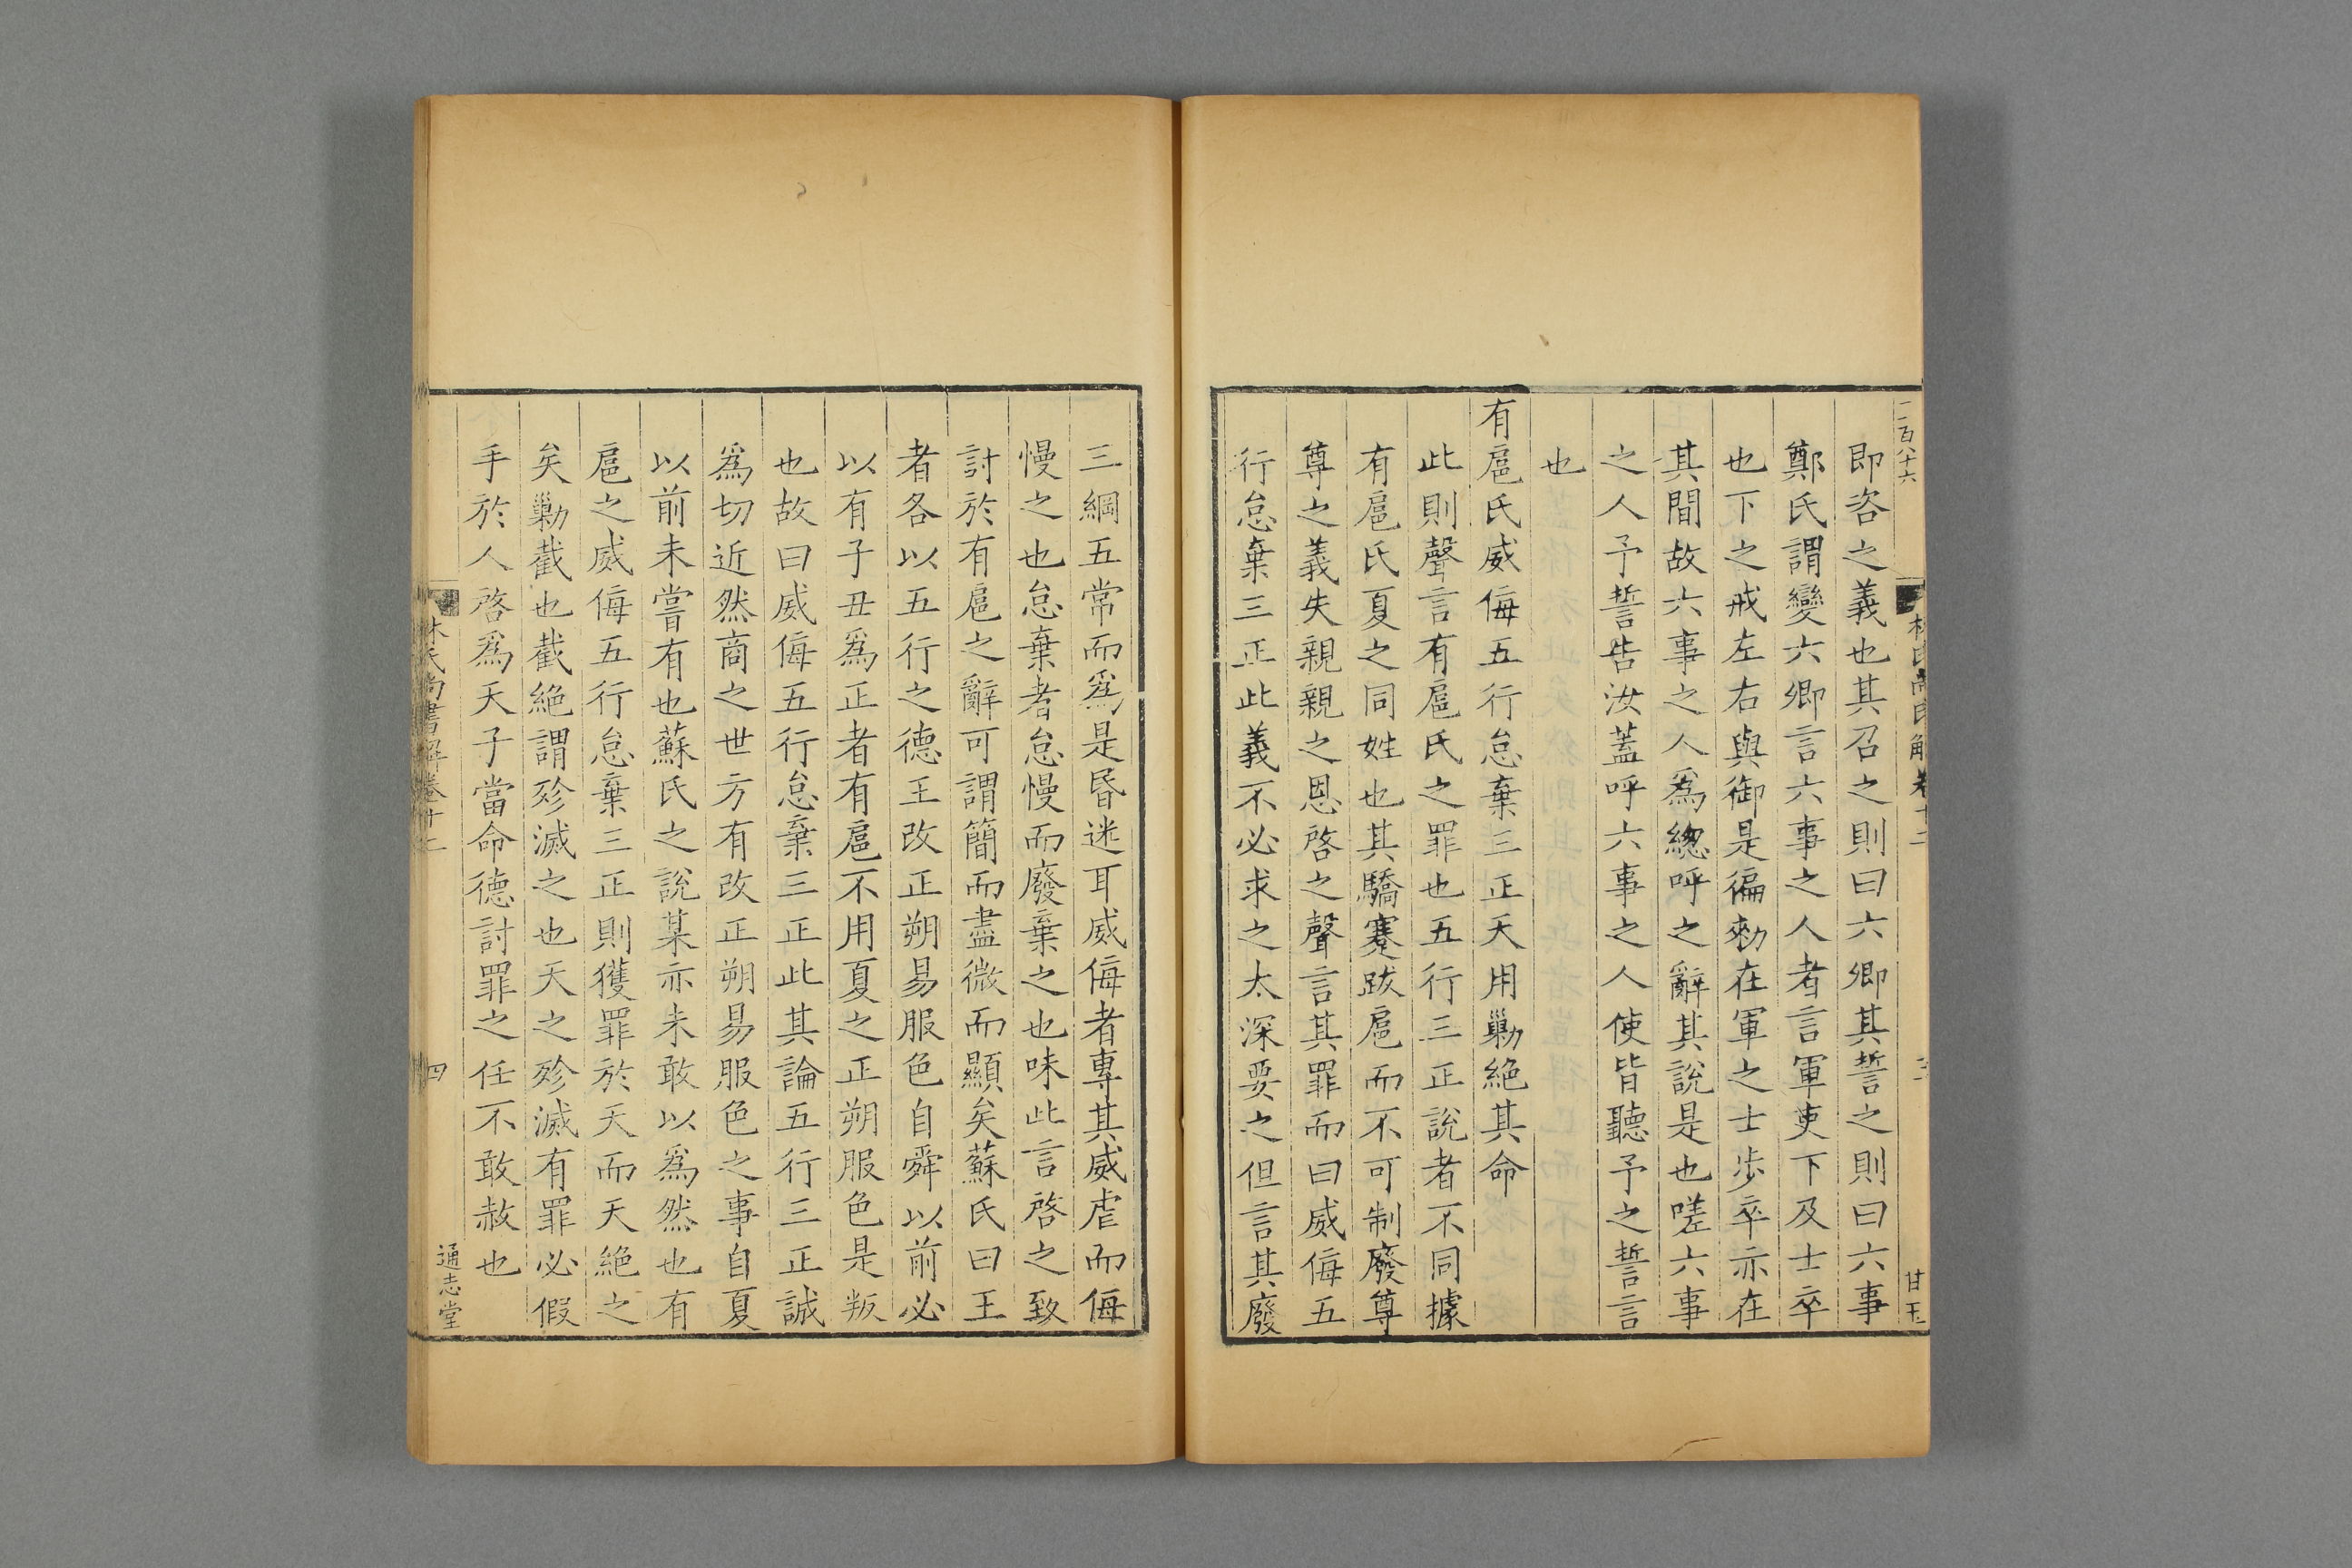 二百八十六
即咨之義也其召之則曰六卿其誓之則曰六事
鄭氏謂變六卿言六事之人者言軍吏下及士卒
也下之戒左右與御是徧勑在軍之士步卒亦在
其間故六事之人爲緫呼之辭其說是也嗟六事
之人予誓告汝蓋呼六事之人使皆聽予之誓言
也
有扈氏威侮五行怠棄三正天用勦絕其命
此則聲言有扈氏之罪也五行三正說者不同據
有扈氏夏之同姓也其驕蹇跋扈而不可制廢尊
尊之義失親親之恩啓之聲言其罪而曰威侮五
行怠棄三正此義不必求之太深要之但言其廢
三綱五常而爲是昬迷耳威侮者專其威虐而侮
慢之也怠棄者怠慢而廢棄之也味此言啓之致
討於有扈之辭可謂簡而盡微而顯矣蘇氏曰王
者各以五行之德王改正朔易服色自舜以前必
以有子丑爲正者有扈不用夏之正朔服色是叛
也故曰威侮五行怠棄三正此其論五行三正誠
爲切近然商之世方有改正朔易服色之事自夏
以前未嘗有也蘇氏之說某亦未敢以爲然也有
扈之威侮五行怠棄三正則獲罪於天而天絕之
矣勦截也截絕謂殄滅之也天之殄滅有罪必假
手於人啓爲天子當命德討罪之任不敢赦也
林氏尚書解卷十二
四
通志堂